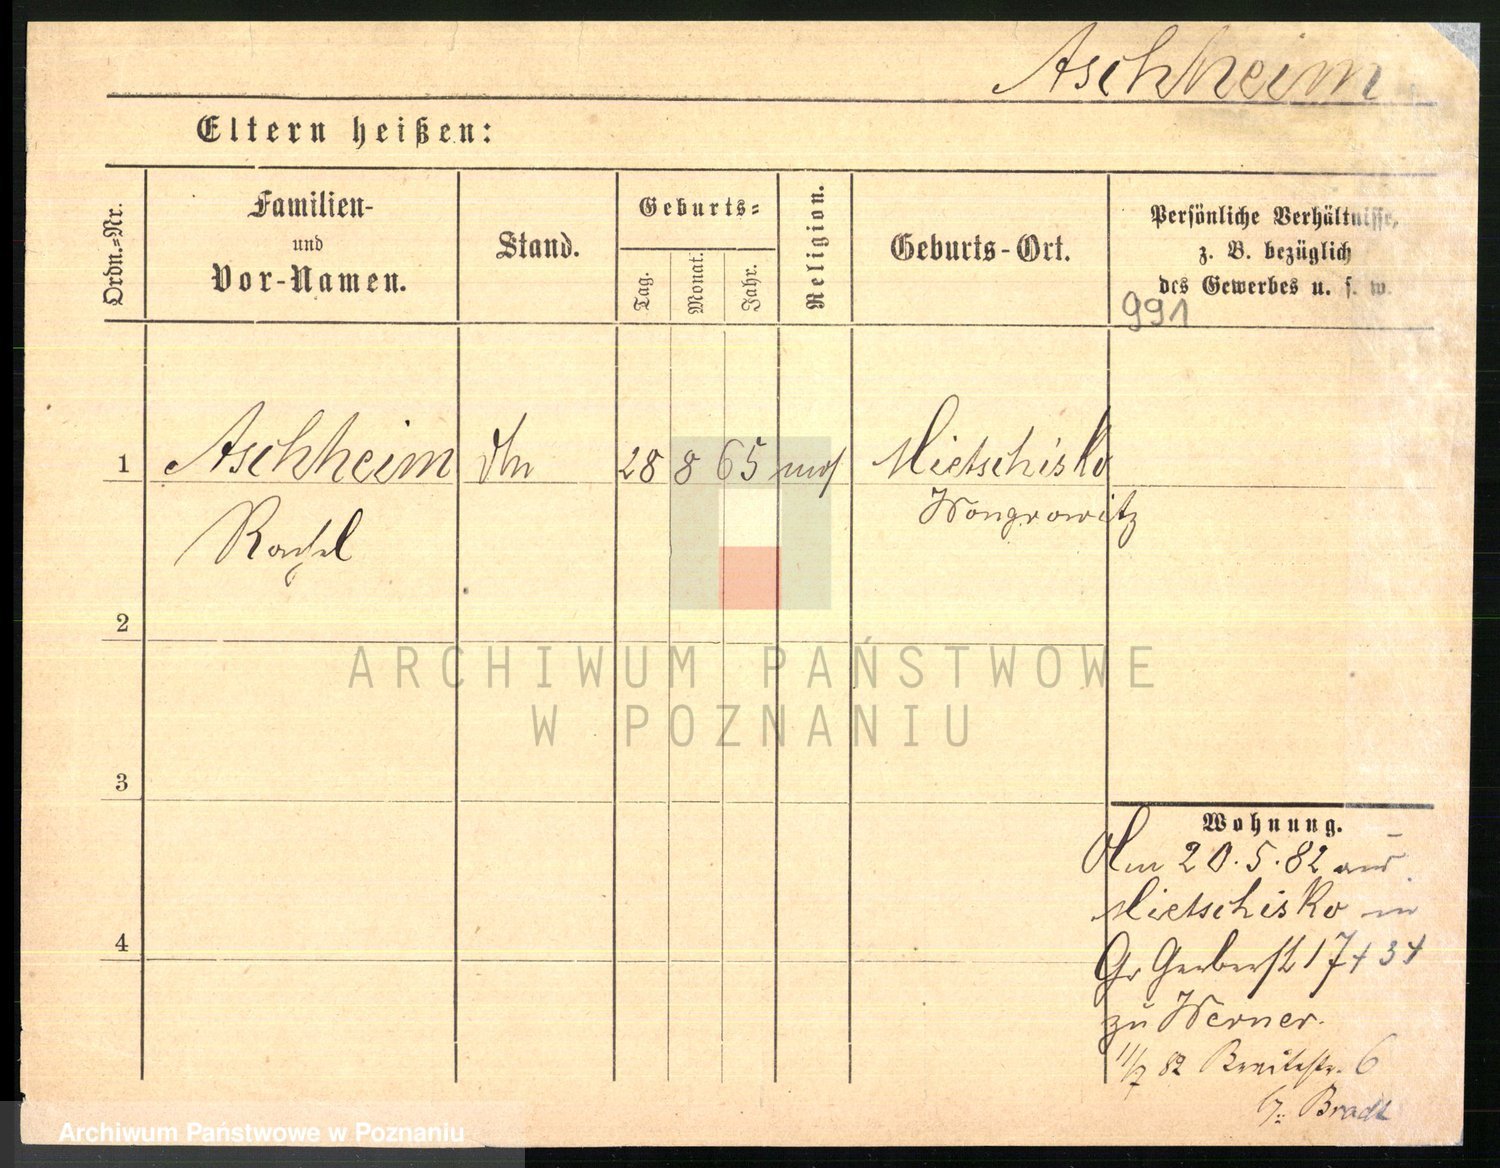 Aschheim
Eltern heißen:
Ordn.=Nr.
Familien-
und
Vor-Namen.
Stand.
Geburts=
Tag.
Monat.
Jahr.
Religion.
Geburts-Ort.
Persönliche Verhältnisse,
z. B. bezüglich
des Gewerbes u. s. w.
991
1 Aschheim 28 8 65 mos Mietschisko
Wongrowitz
Rachel
2
3
4
ARCHIWUM PAŃSTWOWE
W POZNANIU
Wohnung.
Am 20.5.82 aus
Mietschisko in
Gr Gerberst 17
zu Werner.
11/7 82 Breitestr. 6
Bradt
Archiwum Państwowe w Poznaniu